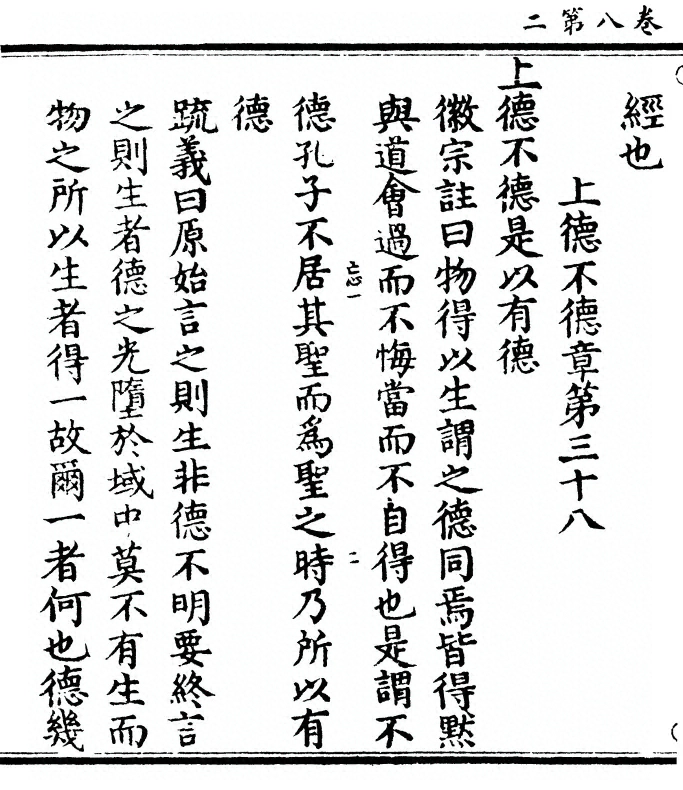 卷八第二
經也
上德不德章第三十八
上德不德是以有德
徽宗註曰物得以生謂之德同焉皆得默
與道會過而不悔當而不自得也是謂不
忘心一 二
德孔子不居其聖而爲聖之時乃所以有
德
疏義曰原始言之則生非德不明要終言
之則生者德之光墮於域中莫不有生而
物之所以生者得一故爾一者何也德幾